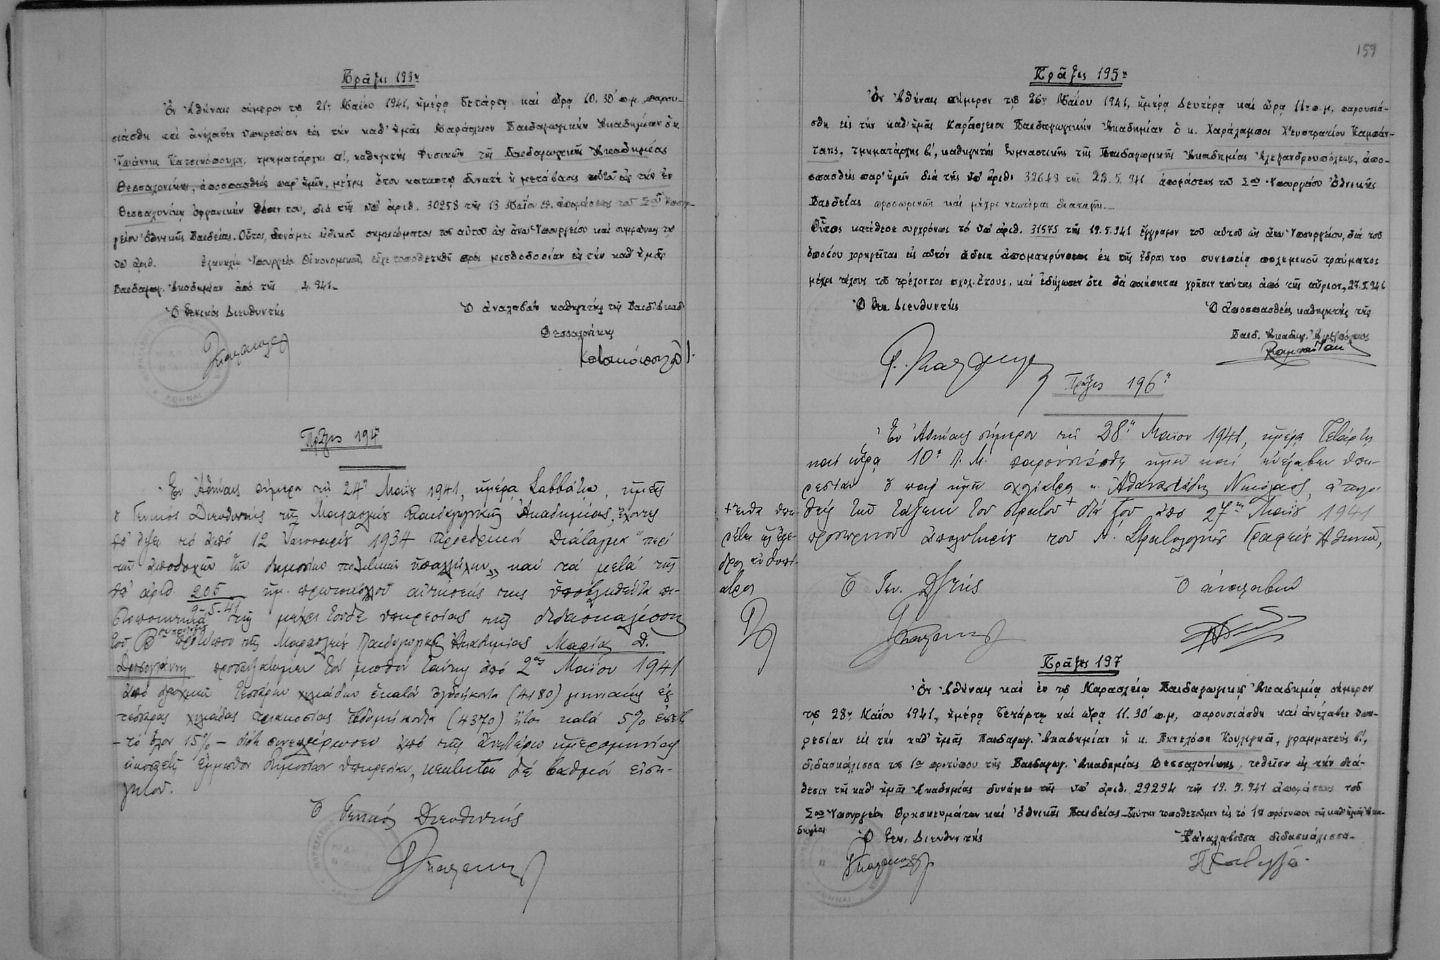 Πρᾶξις 193η
Ἐν Ἀθήναις σήμερον τῇ 21η Μαΐου 1941, ἡμέρᾳ Τετάρτῃ καὶ ὥρᾳ 10.30' π.μ. παρου-
σιάσθη καὶ ἀνέλαβεν ὑπηρεσίαν εἰς τὴν καθ' ἡμᾶς Μαράσλειον Παιδαγωγικὴν Ἀκαδημίαν ὁ κ.
Ἰωάννης Κατσικόπουλος, τμηματάρχης α', καθηγητὴς Φυσικῶν τῆς Παιδαγωγικῆς Ἀκαδημίας
Θεσσαλονίκης, ἀποσπασθεὶς παρ' ἡμῖν, μέχρις ὅτου καταστῇ δυνατὴ ἡ μετάβασις αὐτοῦ εἰς τὴν ἐν
Θεσσαλονίκῃ ὀργανικὴν θέσιν του, διὰ τῆς ὑπ' ἀριθ. 30258 τῆς 13 Μαΐου ἀποφάσεως τοῦ Σου Ὑπουρ-
γείου Ἐθνικῆς Παιδείας. Οὗτος, δυνάμει εἰδικοῦ σημειώματος τοῦ αὐτοῦ ὡς ἄνω Ὑπουργείου καὶ συμφώνως τῇ
ὑπ' ἀριθ. ἐγκυκλίῳ Ὑπουργείου Οἰκονομικῶν, εἶχε τοποθετηθῆ πρὸς μισθοδοσίαν εἰς τὴν καθ' ἡμᾶς
Παιδαγωγ. Ἀκαδημίαν ἀπὸ τῆς 4.941.
Ὁ Γενικὸς Διευθυντὴς Ὁ ἀναλαβὼν καθηγητὴς τῆς Παιδ. Ἀκαδ.
Θεσσαλονίκης
Πρᾶξις 194η
Ἐν Ἀθήναις σήμερον τῇ 24η Μαΐου 1941, ἡμέρᾳ Σαββάτῳ, ἡμεῖς
ὁ Γενικὸς Διευθυντὴς τῆς Μαρασλείου Παιδαγωγικῆς Ἀκαδημίας, ἔχοντες
ὑπ' ὄψει τὸ ἀπὸ 12 Ἰανουαρίου 1934 Προεδρικὸν Διάταγμα "περὶ
τῶν ἀποδοχῶν τῶν δημοσίων πολιτικῶν ὑπαλλήλων" καὶ τὰ μετὰ τῆς
ὑπ' ἀριθ. 205 ἡμ. πρωτοκόλλου αἰτήσεώς της ὑποβληθέντα πι-
9-5-41
στοποιητικὰ τῆς μέχρι τοῦδε ὑπηρεσίας τῆς διδασκαλίσσης
τοῦ Β' προτύπου τῆς Μαρασλείου Παιδαγωγικῆς Ἀκαδημίας Μαρίας Δ.
προσαυξάνομεν τὸν μισθὸν ταύτης ἀπὸ 2ας Μαΐου 1941
ἀπὸ δραχμὰς τέσσαρας χιλιάδας ἑκατὸν ὀγδοήκοντα (4180) μηνιαίως εἰς
τέσσαρας χιλιάδας τριακοσίας ἑβδομήκοντα (4370) ἤτοι κατὰ 5% ἐπὶ
- τὸ ὅλον 15% - διότι συνεπλήρωσεν ἀπὸ τῆς ἀνωτέρω ἡμερομηνίας
ἔμμισθον δημοσίαν ὑπηρεσίαν, κέκτηται δὲ βαθμὸν εἰση-
γητοῦ.
Ὁ Γενικὸς Διευθυντὴς
159
Πρᾶξις 195η
Ἐν Ἀθήναις σήμερον τῇ 26η Μαΐου 1941, ἡμέρᾳ Δευτέρᾳ καὶ ὥρᾳ 11 π.μ, παρουσιά-
σθη εἰς τὴν καθ' ἡμᾶς Μαράσλειον Παιδαγωγικὴν Ἀκαδημίαν ὁ κ. Χαράλαμπος Εὐστρατίου Καμπάν-
τακης, τμηματάρχης β', καθηγητὴς Γυμναστικῆς τῆς Παιδαγωγικῆς Ἀκαδημίας Ἀλεξανδρουπόλεως, ἀπο-
σπασθεὶς παρ' ἡμῖν διὰ τῆς ὑπ' ἀριθ. 32643 τῆς 23.5.941 ἀποφάσεως τοῦ Σου Ὑπουργείου Ἐθνικῆς
Παιδείας προσωρινῶς καὶ μέχρι νεωτέρας διαταγῆς.
Οὗτος κατέθεσε συγχρόνως τὸ ὑπ' ἀριθ. 31575 τῆς 19.5.941 ἔγγραφον τοῦ αὐτοῦ ὡς ἄνω Ὑπουργείου, διὰ τοῦ
ὁποίου χορηγεῖται εἰς αὐτὸν ἄδεια ἀπομακρύνσεως ἐκ τῆς ἕδρας του συνεπείᾳ πολεμικοῦ τραύματος
μέχρι τέλους τοῦ τρέχοντος σχολ. ἔτους, καὶ ἐδήλωσεν ὅτι θὰ ποιήσηται χρῆσιν ταύτης ἀπὸ τῆς αὔριον, 27.5.941
Ὁ Γεν. Διευθυντὴς Ὁ ἀποσπασθεὶς καθηγητὴς τῆς
Παιδ. Ἀκαδημ. Ἀλεξ/πόλεως
Πρᾶξις 196η
Ἐν Ἀθήναις σήμερον τῇ 28ῃ Μαΐου 1941, ἡμέρᾳ Τετάρτῃ
καὶ ὥρᾳ 10ῃ Π.Μ. παρουσιάσθη ἡμῖν καὶ ἀνέλαβεν ὑπη-
ρεσίαν ὁ παρ' ἡμῖν σχολίατρος κ. Ἀθανασιάδης Νικόλαος, ἀπολυ-
θεὶς τῶν τάξεων τοῦ στρατοῦ + διὰ τοῦ ἀπὸ 27ης Μαΐου 1941
προσωρινοῦ ἀπολυτηρίου τοῦ Α. Στρατολογικοῦ Γραφείου Ἀθηνῶν,
+ ἔνθα ὑπη-
ρέτει ὡς ἔφε-
δρος ἀνθυπί-
ατρος
Ὁ Γεν. Δ/ντής Ὁ ἀναλαβὼν
Πρᾶξις 197
Ἐν Ἀθήναις καὶ ἐν τῇ Μαρασλείῳ Παιδαγωγικῇ Ἀκαδημίᾳ σήμερον
τῇ 28ῃ Μαΐου 1941, ἡμέρᾳ Τετάρτῃ καὶ ὥρᾳ 11.30' π.μ, παρουσιάσθη καὶ ἀνέλαβεν ὑπη-
ρεσίαν εἰς τὴν καθ' ἡμᾶς Παιδαγωγ. Ἀκαδημίαν ἡ κ. Πηνελόπη, γραμματεὺς β',
διδασκάλισσα τοῦ 1ου προτύπου τῆς Παιδαγωγ. Ἀκαδημίας Θεσσαλονίκης, τεθεῖσα εἰς τὴν διά-
θεσιν τῆς καθ' ἡμᾶς Ἀκαδημίας δυνάμει τῆς ὑπ' ἀριθ. 29294 τῆς 19.5.941 ἀποφάσεως τοῦ
Σου Ὑπουργείου Θρησκευμάτων καὶ Ἐθνικῆς Παιδείας. Ταύτην τοποθετοῦμεν εἰς τὸ 1ον πρότυπον τῆς καθ' ἡμᾶς Ἀκα-
δημίας
Ὁ Γεν. Διευθυντὴς Ἡ ἀναλαβοῦσα διδασκάλισσα